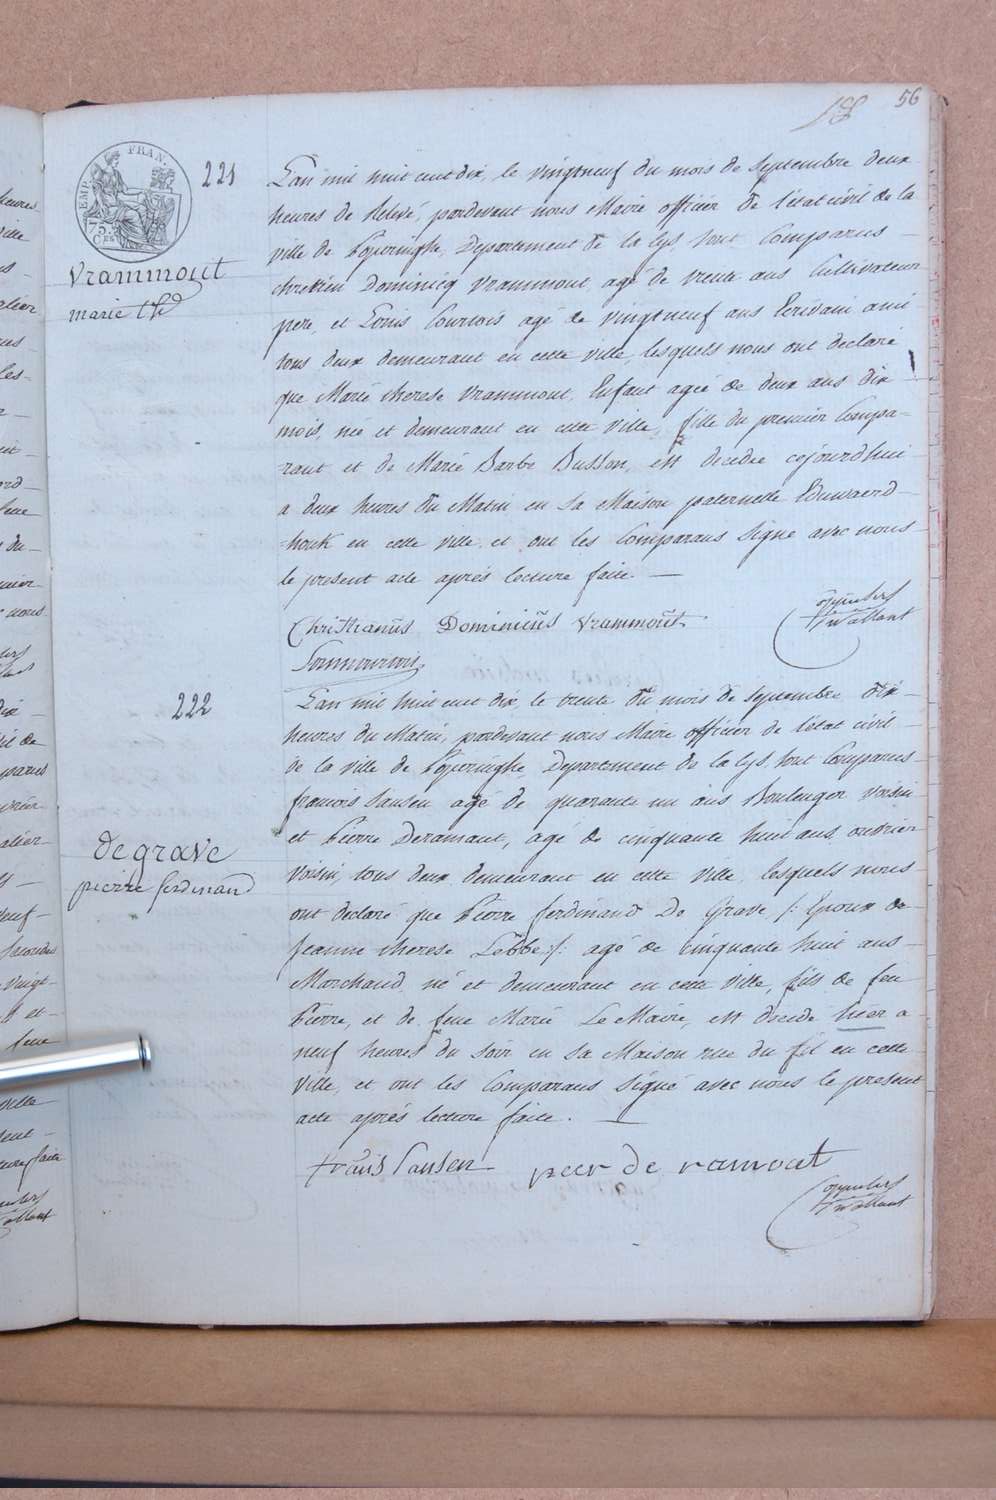 56
EMP. FRAN.
75.
Ces
221
L'an mil huit cent dix, le vingtneuf du mois de Septembre deux
heures de Relevé, pardevant nous Maire officier de l'état civil de la
ville de Poperinghe, Departement de la Lys, sont Comparus –
Vrammout
marie thé
chretien Dominicq Vrammout, agé de trente ans Cultivateur
pere, et Louis Courtois agé de vingtneuf ans Ecrivain ami
tous deux demeurant en cette ville, lesquels nous ont declaré
que Marie therese Vrammout, Enfant agée de deux ans dix
mois, née et demeurant en cette ville, fille du premier Compa-
rant et de Marie Barbe Busson, est decedée cejourd'hui
a deux heures du Matin en sa Maison paternelle Eduwaerd-
-houk en cette ville, et ont les Comparans Signé avec nous
le present acte aprés lecture faite. —
Christianus Dominicus Vrammout
222
L'an mil huit cent dix, le trente du mois de Septembre dix
heures du Matin, pardevant nous Maire officier de l'état civil –
de la ville de Poperinghe, Departement de la Lys, sont Comparus
francois Sansen agé de quarante un ans Boulenger voisin
degrave
pierre ferdinand
et Pierre Deramaut, agé de cinquante huit ans, ouvrier
voisin, tous deux demeurant en cette ville, lesquels nous
ont declaré que Pierre ferdinand De Grave /: Epoux de
Jeanne therese Lebbe:/ agé de cinquante huit ans –
Marchand, né et demeurant en cette ville, fils de feu
Pierre, et de feue Marie Le Maire, est decedé hier a
neuf heures du soir en sa Maison rue du fil en cette
ville, et ont les Comparans signé avec nous le present
acte aprés lecture faite. —
frans Sansen peer de ramout